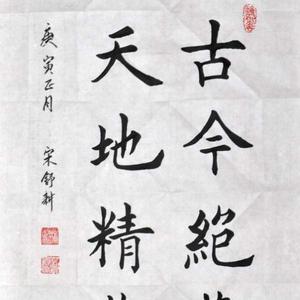 古今絕
天地精
庚寅正月 宋舒科